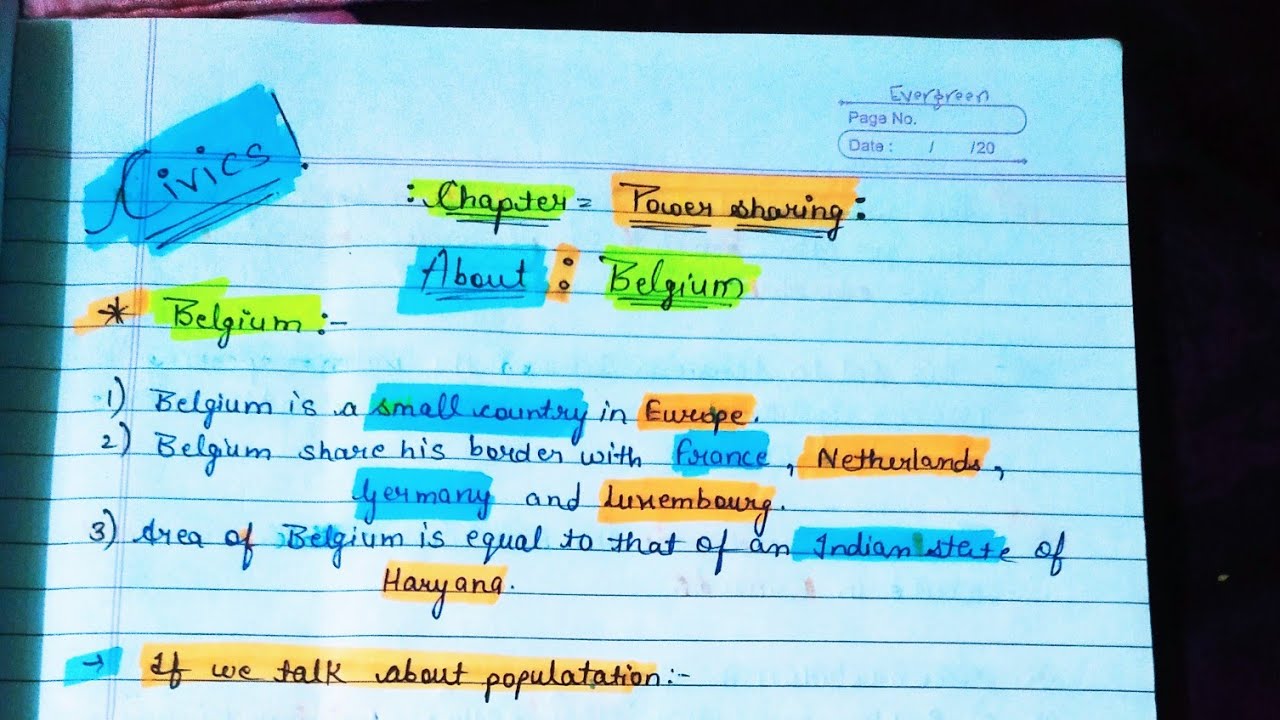 Evergreen
Page No.
Date : / /20
Civics
: Chapter = Power sharing :
About : Belgium
* Belgium :-
1) Belgium is a small country in Europe.
2) Belgium share his border with france, Netherlands,
Germany and Luxembourg.
3) Area of Belgium is equal to that of an Indian state of
Haryana.
→ If we talk about populatation :-